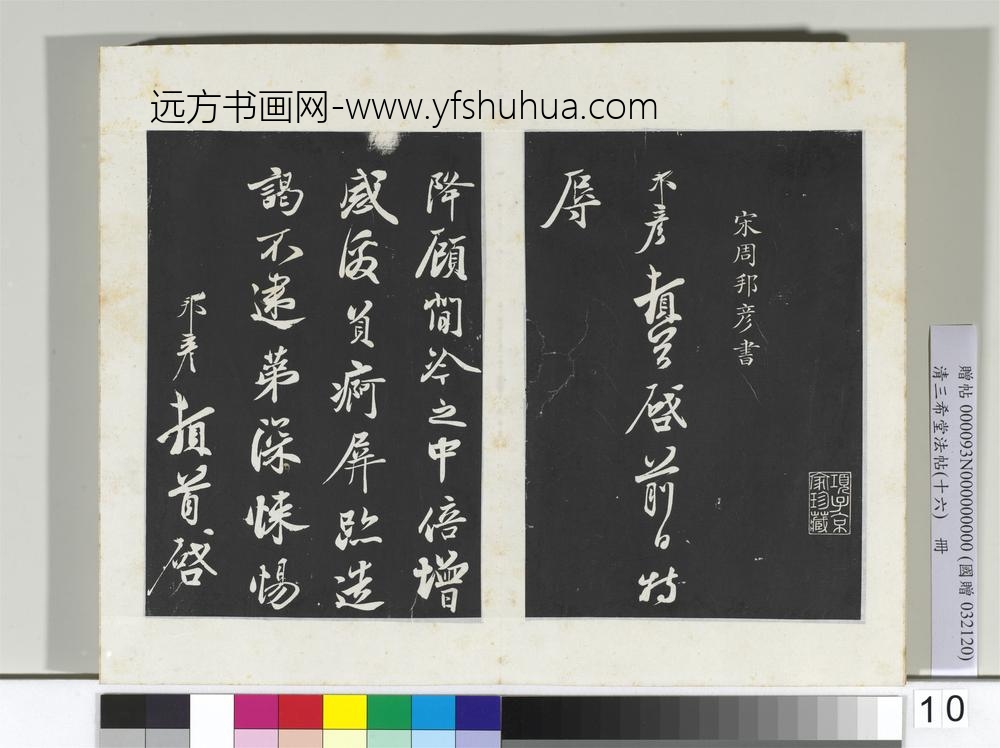 远方书画网-www.yfshuhua.com
宋周邦彦書
邦彦頓首啓前日特
辱
降顧閒冷之中倍增
感後負痾屏跧造
謁不逮第深悚惕
邦彦頓首啓
項子京
家珍藏
贈帖 000093N000000000 (國贈 032120)
清三希堂法帖(十六) 冊
10